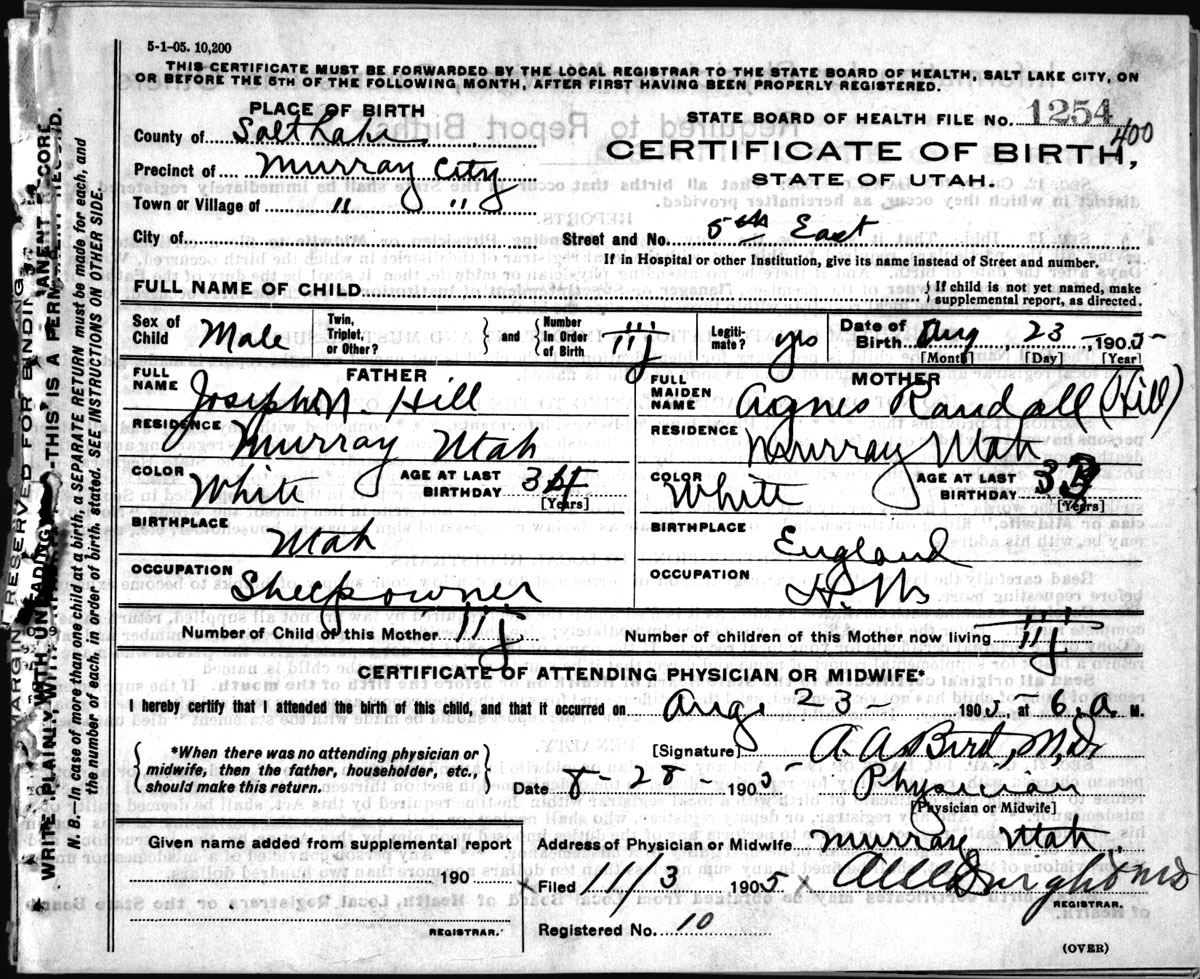 5-1-05. 10,200
THIS CERTIFICATE MUST BE FORWARDED BY THE LOCAL REGISTRAR TO THE STATE BOARD OF HEALTH, SALT LAKE CITY, ON
OR BEFORE THE 5TH OF THE FOLLOWING MONTH, AFTER FIRST HAVING BEEN PROPERLY REGISTERED.
PLACE OF BIRTH
STATE BOARD OF HEALTH FILE NO. 1254
400
County of Salt Lake
CERTIFICATE OF BIRTH,
Precinct of Murray City
STATE OF UTAH.
Town or Village of " "
City of
Street and No. 5th East
If in Hospital or other Institution, give its name instead of Street and number.
FULL NAME OF CHILD
If child is not yet named, make
supplemental report, as directed.
Sex of Child Male
Twin, Triplet, or Other?
and
Number in Order of Birth III
Legiti- mate? yes
Date of Birth Aug 23 1905
[Month] [Day] [Year]
FATHER
FULL NAME Joseph N. Hill
RESIDENCE Murray Utah
COLOR White
AGE AT LAST BIRTHDAY 34
[Years]
BIRTHPLACE Utah
OCCUPATION Sheep owner
MOTHER
FULL MAIDEN NAME Agnes Randall (Hill)
RESIDENCE Murray Utah
COLOR White
AGE AT LAST BIRTHDAY 33
[Years]
BIRTHPLACE England
OCCUPATION
Number of Child of this Mother III
Number of children of this Mother now living III
CERTIFICATE OF ATTENDING PHYSICIAN OR MIDWIFE*
I hereby certify that I attended the birth of this child, and that it occurred on Aug. 23 - 1905, at 6. a. M.
*When there was no attending physician or
midwife, then the father, householder, etc.,
should make this return.
[Signature] A. A. Bird, M.D.
Date 8-28- 1905 Physician
[Physician or Midwife]
Given name added from supplemental report
190
REGISTRAR.
Address of Physician or Midwife Murray Utah.
x Filed 11/3 1905 x
REGISTRAR.
Registered No. 10
(OVER)
MARGIN RESERVED FOR BINDING
WRITE PLAINLY WITH UNFADING -THIS IS A PERMANENT RECORD.
N. B.—In case of more than one child at a birth, a SEPARATE RETURN must be made for each, and
the number of each, in order of birth, stated. SEE INSTRUCTIONS ON OTHER SIDE.